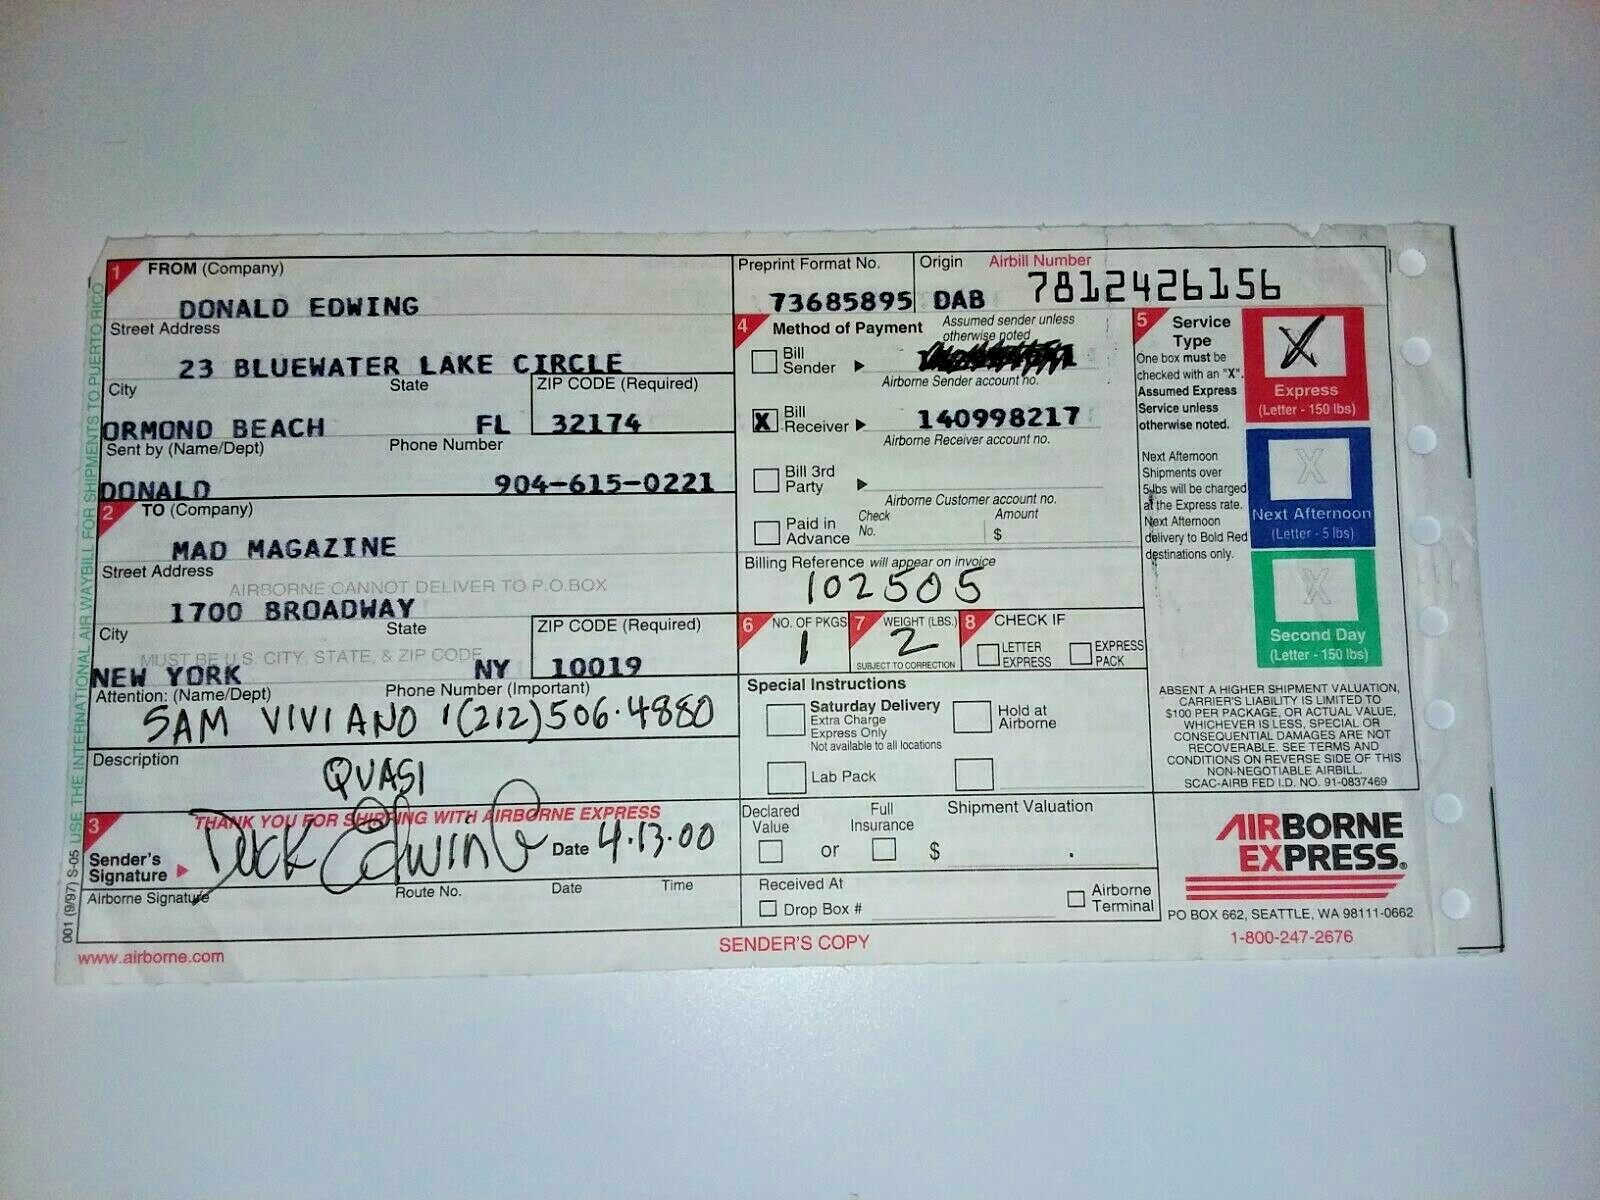 1 FROM (Company)
DONALD EDWING
Street Address
23 BLUEWATER LAKE CIRCLE
City State ZIP CODE (Required)
ORMOND BEACH FL 32174
Sent by (Name/Dept) Phone Number
DONALD 904-615-0221
2 TO (Company)
MAD MAGAZINE
Street Address
AIRBORNE CANNOT DELIVER TO P.O.BOX
1700 BROADWAY
City State ZIP CODE (Required)
MUST BE U.S. CITY, STATE, & ZIP CODE
NEW YORK NY 10019
Attention: (Name/Dept) Phone Number (Important)
SAM VIVIANO 1(212)506·4880
Description
QUASI
3 THANK YOU FOR SHIPPING WITH AIRBORNE EXPRESS
Sender's
Signature
Duck Edwing Date 4·13·00
Airborne Signature Route No. Date Time
Preprint Format No.
73685895
Origin
DAB
Airbill Number
7812426156
4 Method of Payment
Assumed sender unless
otherwise noted
Bill
Sender
Airborne Sender account no.
X Bill
Receiver
140998217
Airborne Receiver account no.
Bill 3rd
Party
Airborne Customer account no.
Paid in
Advance
Check
No.
Amount
$
Billing Reference will appear on invoice
102505
6 NO. OF PKGS
1
7 WEIGHT (LBS.)
2
SUBJECT TO CORRECTION
8 CHECK IF
LETTER
EXPRESS
EXPRESS
PACK
Special Instructions
Saturday Delivery
Extra Charge
Express Only
Not available to all locations
Hold at
Airborne
Lab Pack
Declared
Value
or
Full
Insurance
Shipment Valuation
$ .
Received At
Drop Box #
Airborne
Terminal
5 Service
Type
One box must be
checked with an "X".
Assumed Express
Service unless
otherwise noted.
Next Afternoon
Shipments over
5 lbs will be charged
at the Express rate.
Next Afternoon
delivery to Bold Red
destinations only.
X
Express
(Letter - 150 lbs)
X
Next Afternoon
(Letter - 5 lbs)
X
Second Day
(Letter - 150 lbs)
ABSENT A HIGHER SHIPMENT VALUATION,
CARRIER'S LIABILITY IS LIMITED TO
$100 PER PACKAGE, OR ACTUAL VALUE,
WHICHEVER IS LESS, SPECIAL OR
CONSEQUENTIAL DAMAGES ARE NOT
RECOVERABLE. SEE TERMS AND
CONDITIONS ON REVERSE SIDE OF THIS
NON-NEGOTIABLE AIRBILL.
SCAC-AIRB FED I.D. NO. 91-0837469
AIRBORNE
EXPRESS®
PO BOX 662, SEATTLE, WA 98111-0662
1-800-247-2676
SENDER'S COPY
www.airborne.com
001 (9/97) S-05 USE THE INTERNATIONAL AIR WAYBILL FOR SHIPMENTS TO PUERTO RICO